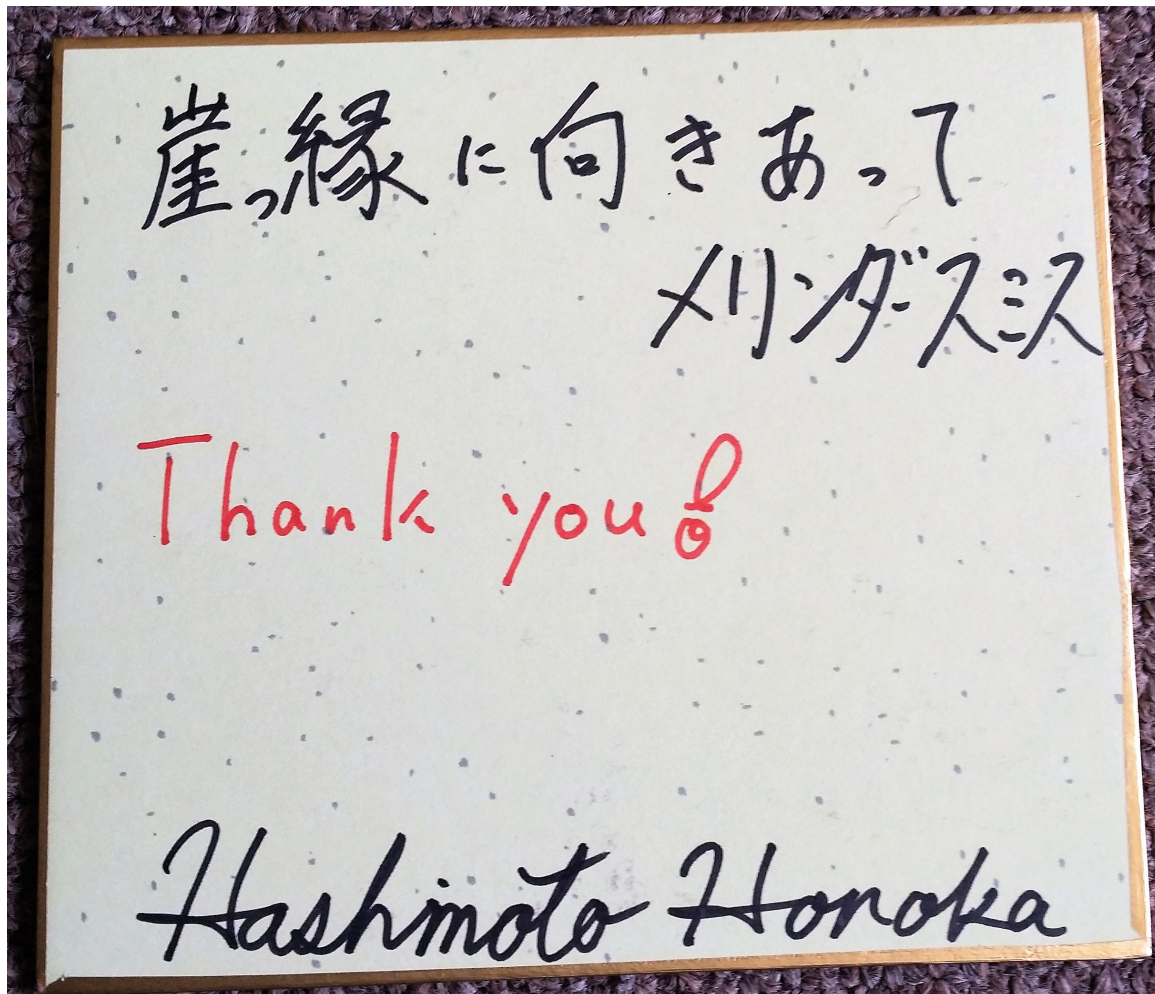 崖っ縁に向きあって
メリンダースミス
Thank you!
Hashimoto Honoka